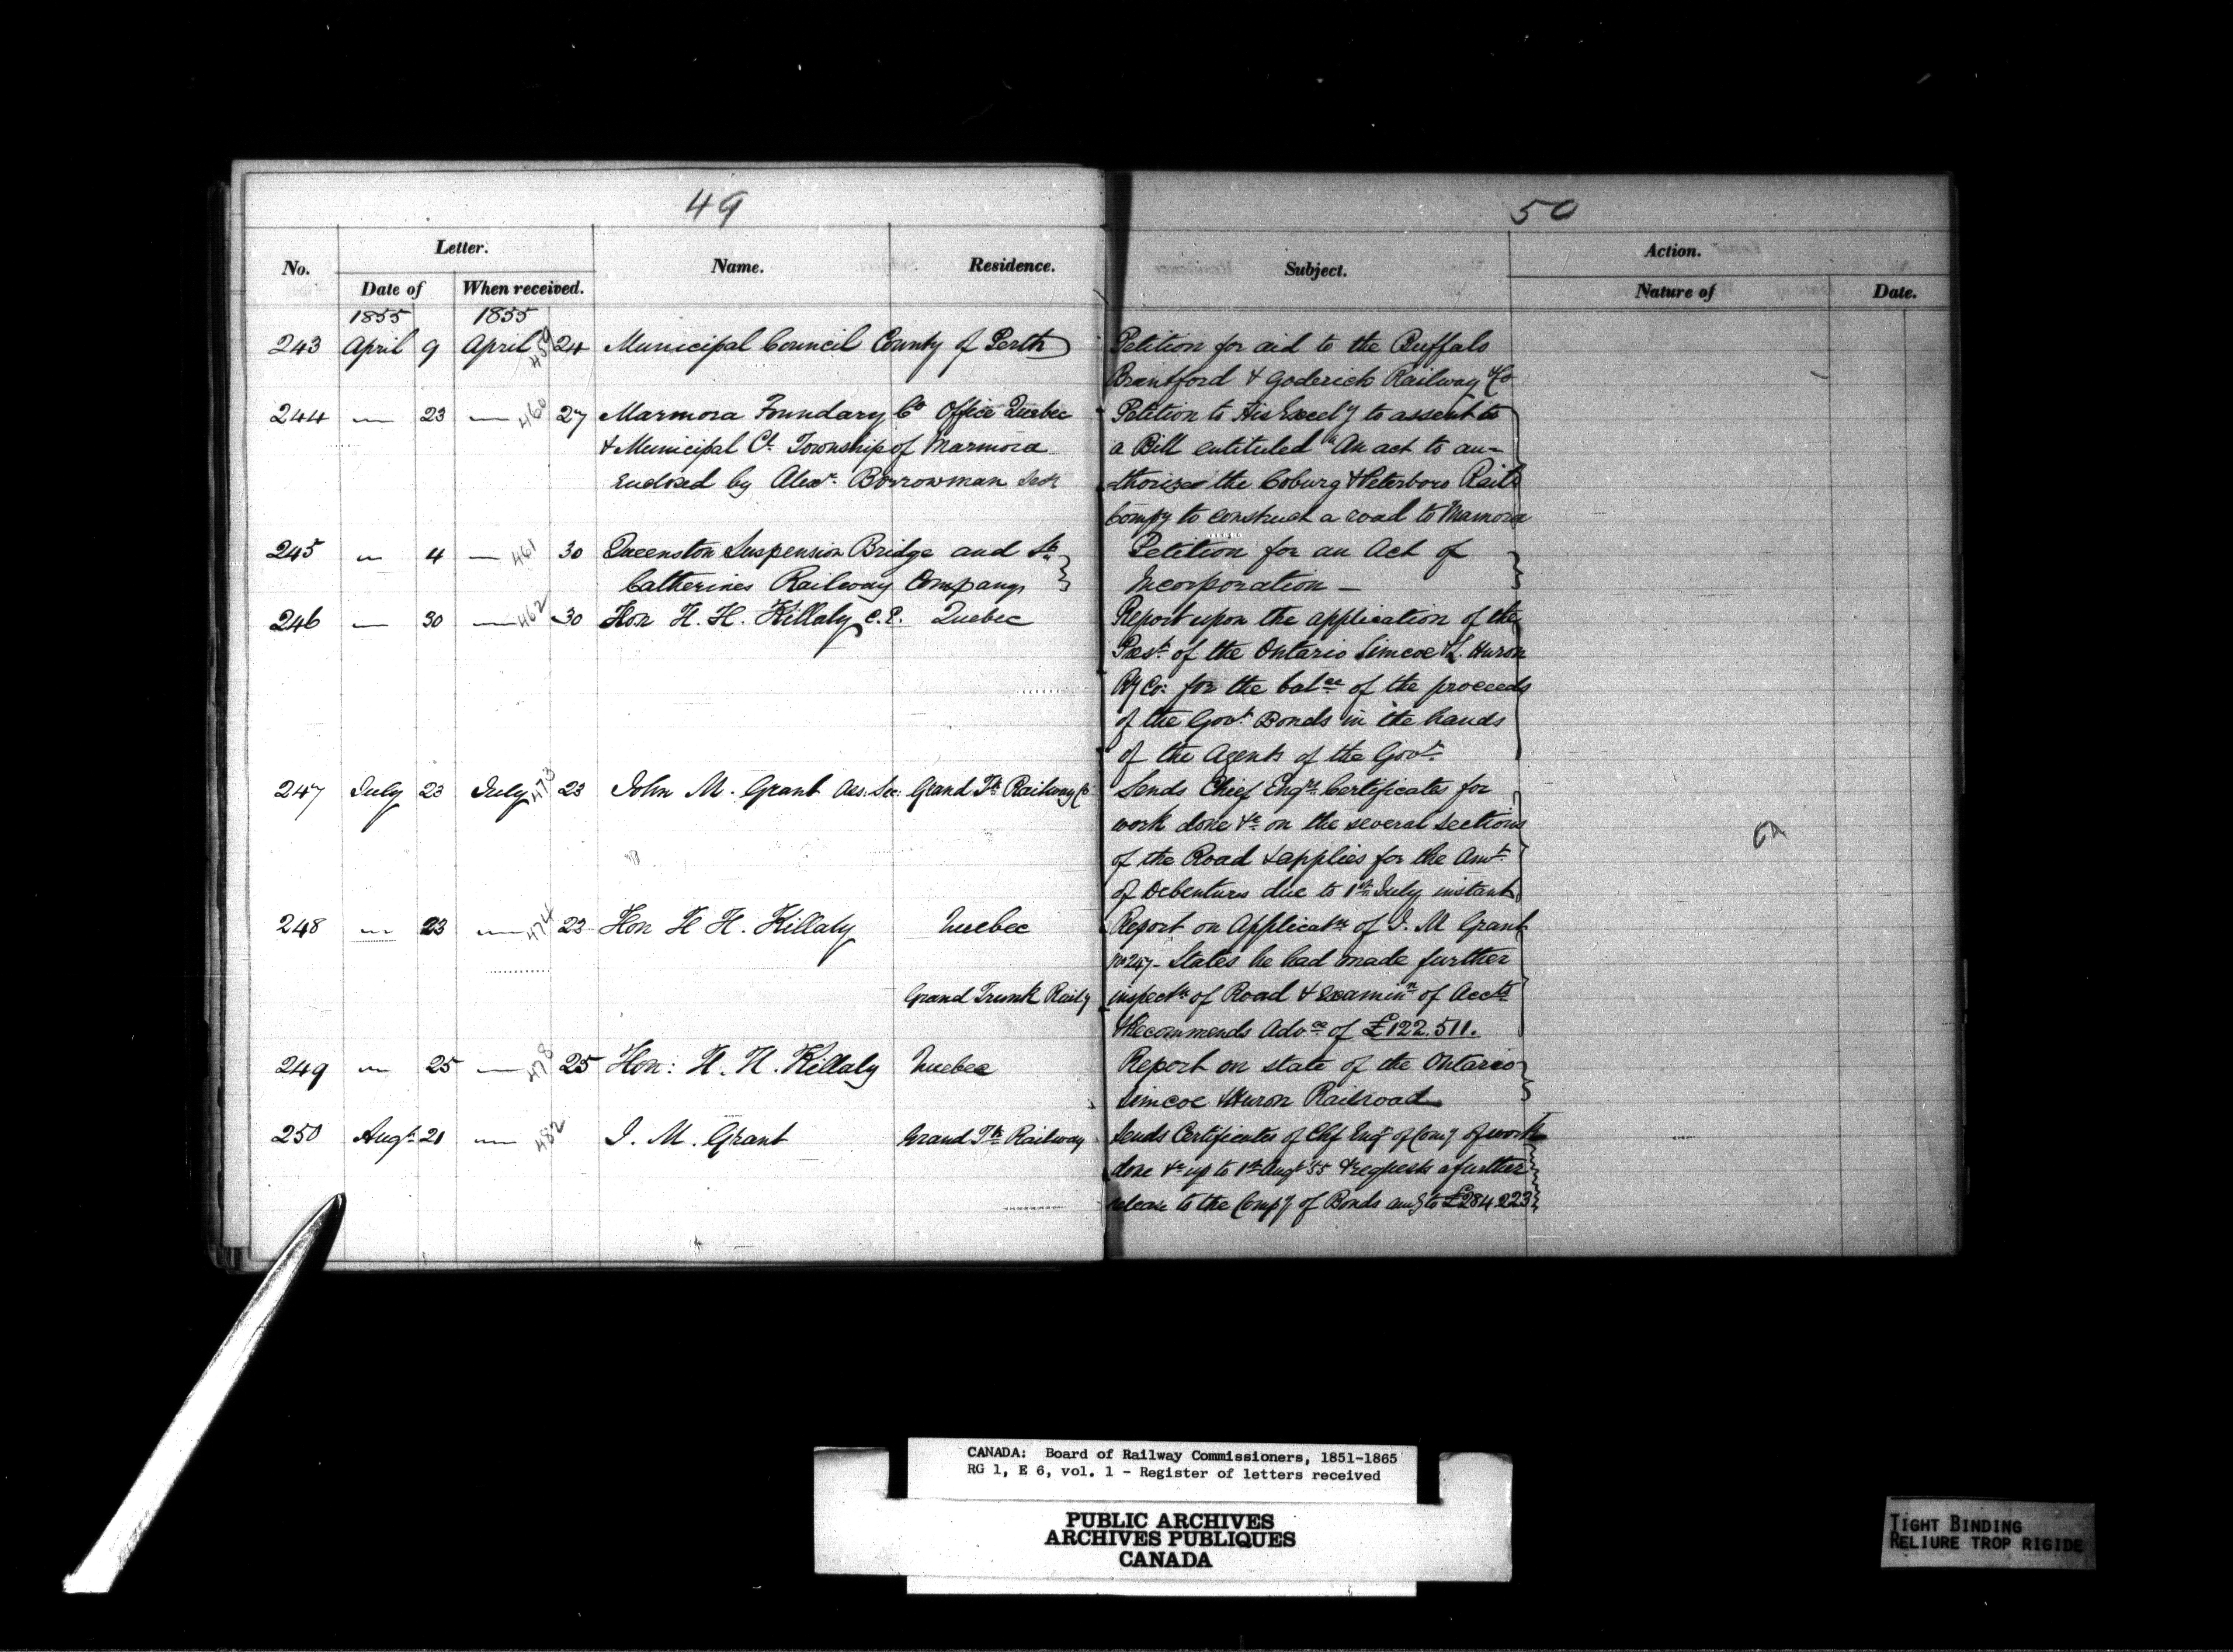 49
No.
Letter.
Date of
When received.
Name.
Residence.
1855
1855
243 April 9 April 459 24 Municipal Council County of Perth
244 — 23 — 460 27 Marmora Foundary Co Office Quebec
& Municipal Cl. Township of Marmora
Endosed by Alexr. Borrowman
245 " 4 — 461 30 Queenston Suspension Bridge and St.
Catherines Railway Company
246 — 30 — 462 30 Hon H. H. Killaly C.E. Quebec
247 July 23 July 473 23 John M. Grant Ass: Sec: Grand Tk Railway Co
248 " 23 — 474 23 Hon H H. Killaly Quebec
Grand Trunk Raily
249 " 25 — 478 25 Hon: H. H. Killaly Quebec
250 Augt 21 — 482 J. M. Grant Grand Tk Railway
50
Subject.
Action.
Nature of
Date.
Petition for aid to the Buffalo
Brantford & Goderich Railway Co
Petition to His Excely to assent to
a Bill entituled "An act to au-
thorize the Coburg & Peterboro Rail
Compy to construct a road to Mamora
Petition for an Act of
Incorporation —
Report upon the application of the
Prest. of the Ontario Simcoe & L. Huron
Ry Co: for the balce of the proceeds
of the Govt Bonds in the hands
of the Agents of the Govt.
Sends Chief Engrs Certificates for
work done &c on the several sections
of the Road & applies for the Amt.
of Debentures due to 1st July instant
Report on Applicatn of J. M Grant
No 247 - States he had made further
inspectn of Road & examinn of Accts
& Recommends Advce of £122.511.
Report on state of the Ontario
Simcoe & Huron Railroad
Sends Certificates of Chf Engr of Comy of work
done &c up to 1st Augt '55 & requests a further
release to the Compy of Bonds amg to £284 223
CANADA: Board of Railway Commissioners, 1851-1865
RG 1, E 6, vol. 1 - Register of letters received
PUBLIC ARCHIVES
ARCHIVES PUBLIQUES
CANADA
TIGHT BINDING
RELIURE TROP RIGIDE